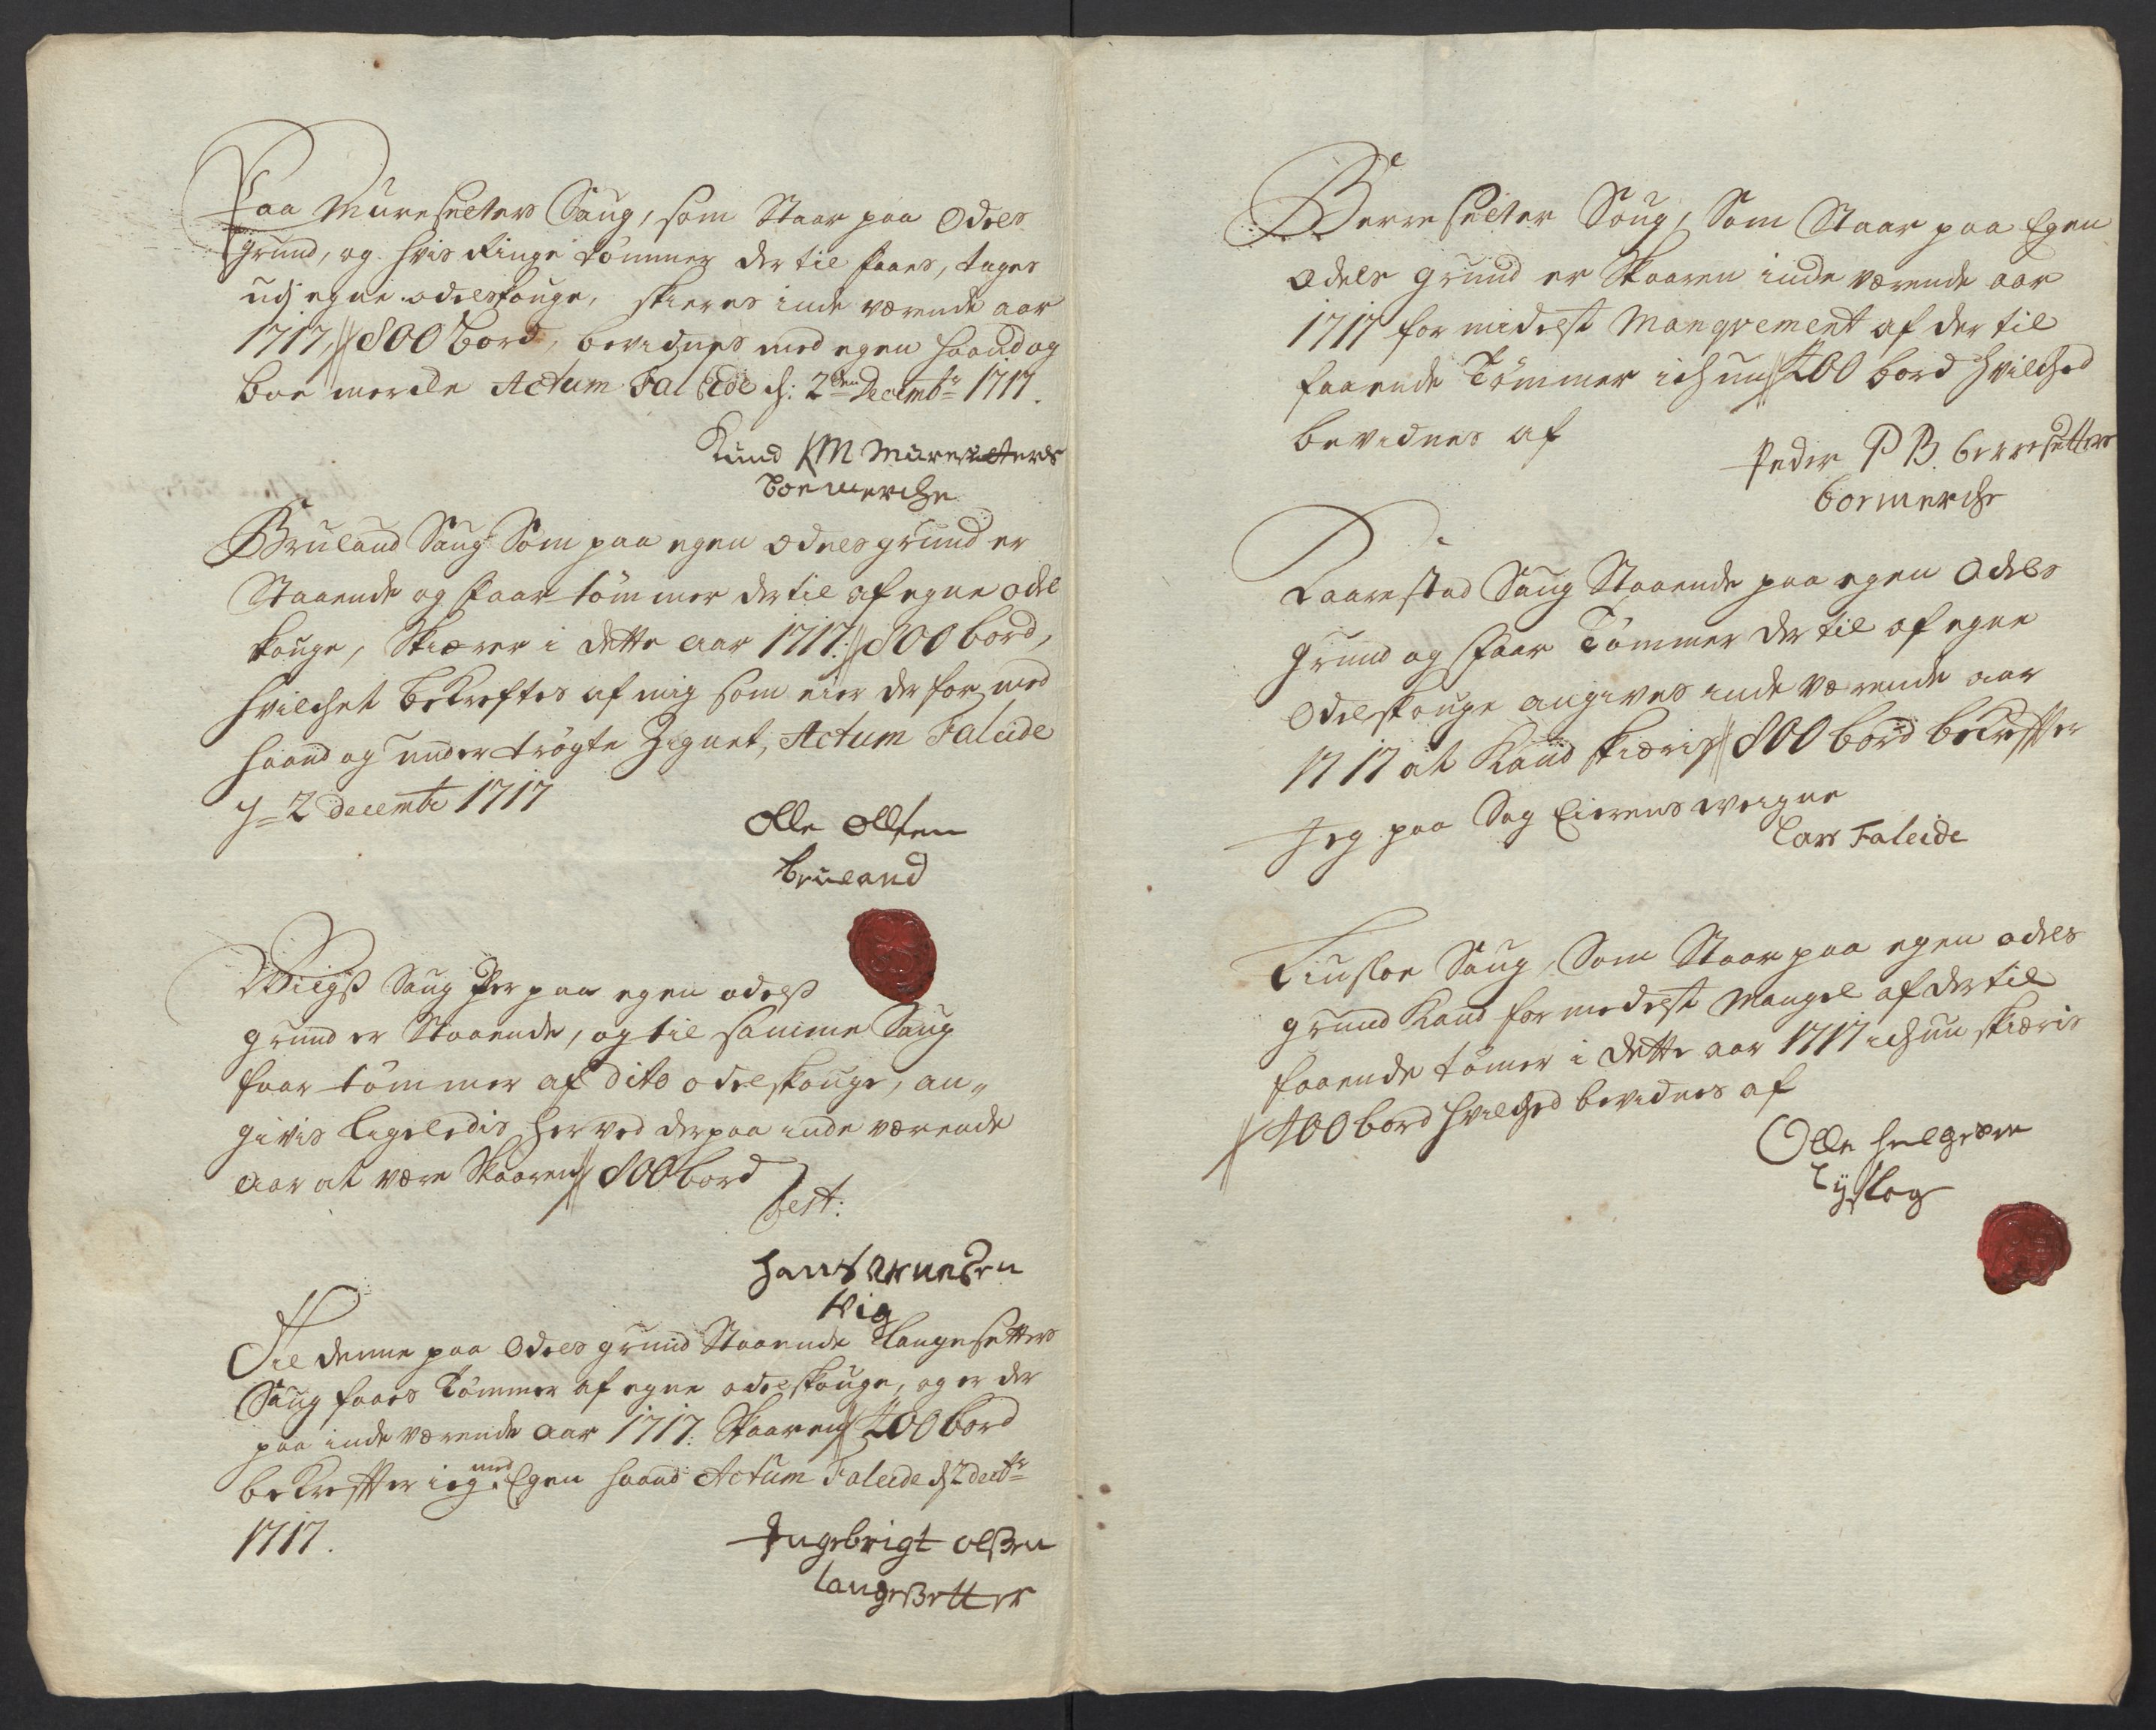 Paa Muresetters Saug, som Staar paa Odels
grund, og hvis Ringe tømmer der til faaes, tages
udj egne odelskouge, skieres inde værende aar
1717, // 800 bord, bevidnes med egen haand og
boe merche Actum Faleide d: 2den Decembr 1717.
Knud KM Muresetters
boemerche
Bruland Saug Som paa egen odels grund er
Staaende og faar tømmer der til af egne odel
kouge, Skiærer i dette aar 1717: // 800 bord,
hvilchet bekreftes af mig som eier der for med
haand og under trøgte Zignet, Actum Faleide
2 decembr 1717
Olle Ollsen
bruland
Wiigs Saug paa egen odels
grund er Staaende, og til samme Saug
faar tømmer af dito odelskouge, an-
givis ligeledis herved derpaa inde værende
aar at være Skaaren // 800 bord
test:
hans
Vig
Til denne paa Odels grund Staaende Langesetters
Saug faaes Tømmer af egne odelskouge, og er der
paa inde værende aar 1717: Skaaren // 400 bord
bekreffter ieg med Egen haand Actum Faleide d 2 decbr
1717.
Ingebrigt olsen
langesetter
Berresetter Saug, Som Staar paa Egen
odels grund er Skaaren inde værende aar
1717 formidelst Manqvement af der til
faaende Tømmer ichun // 400 bord hvilched
bevidnes af
Peder PB. berresetters
boemerche
Raarestad Saug Staaende paa egen Odels
grund og faar Tømmer der til af egne
Odelskouge angives inde værende aar
1717 at kand skiæris // 800 bord bekreffter
Jeg paa Sag Eierens veigne
Lars Faleide
Tiusloe Saug, Som Staar paa egen odels
grund kand formedelst Mangel af dertil
faaende tømer i dette aar 1717 ichun skiæris
// 400 bord hvilched bevidnes af
Olle
Tyslog